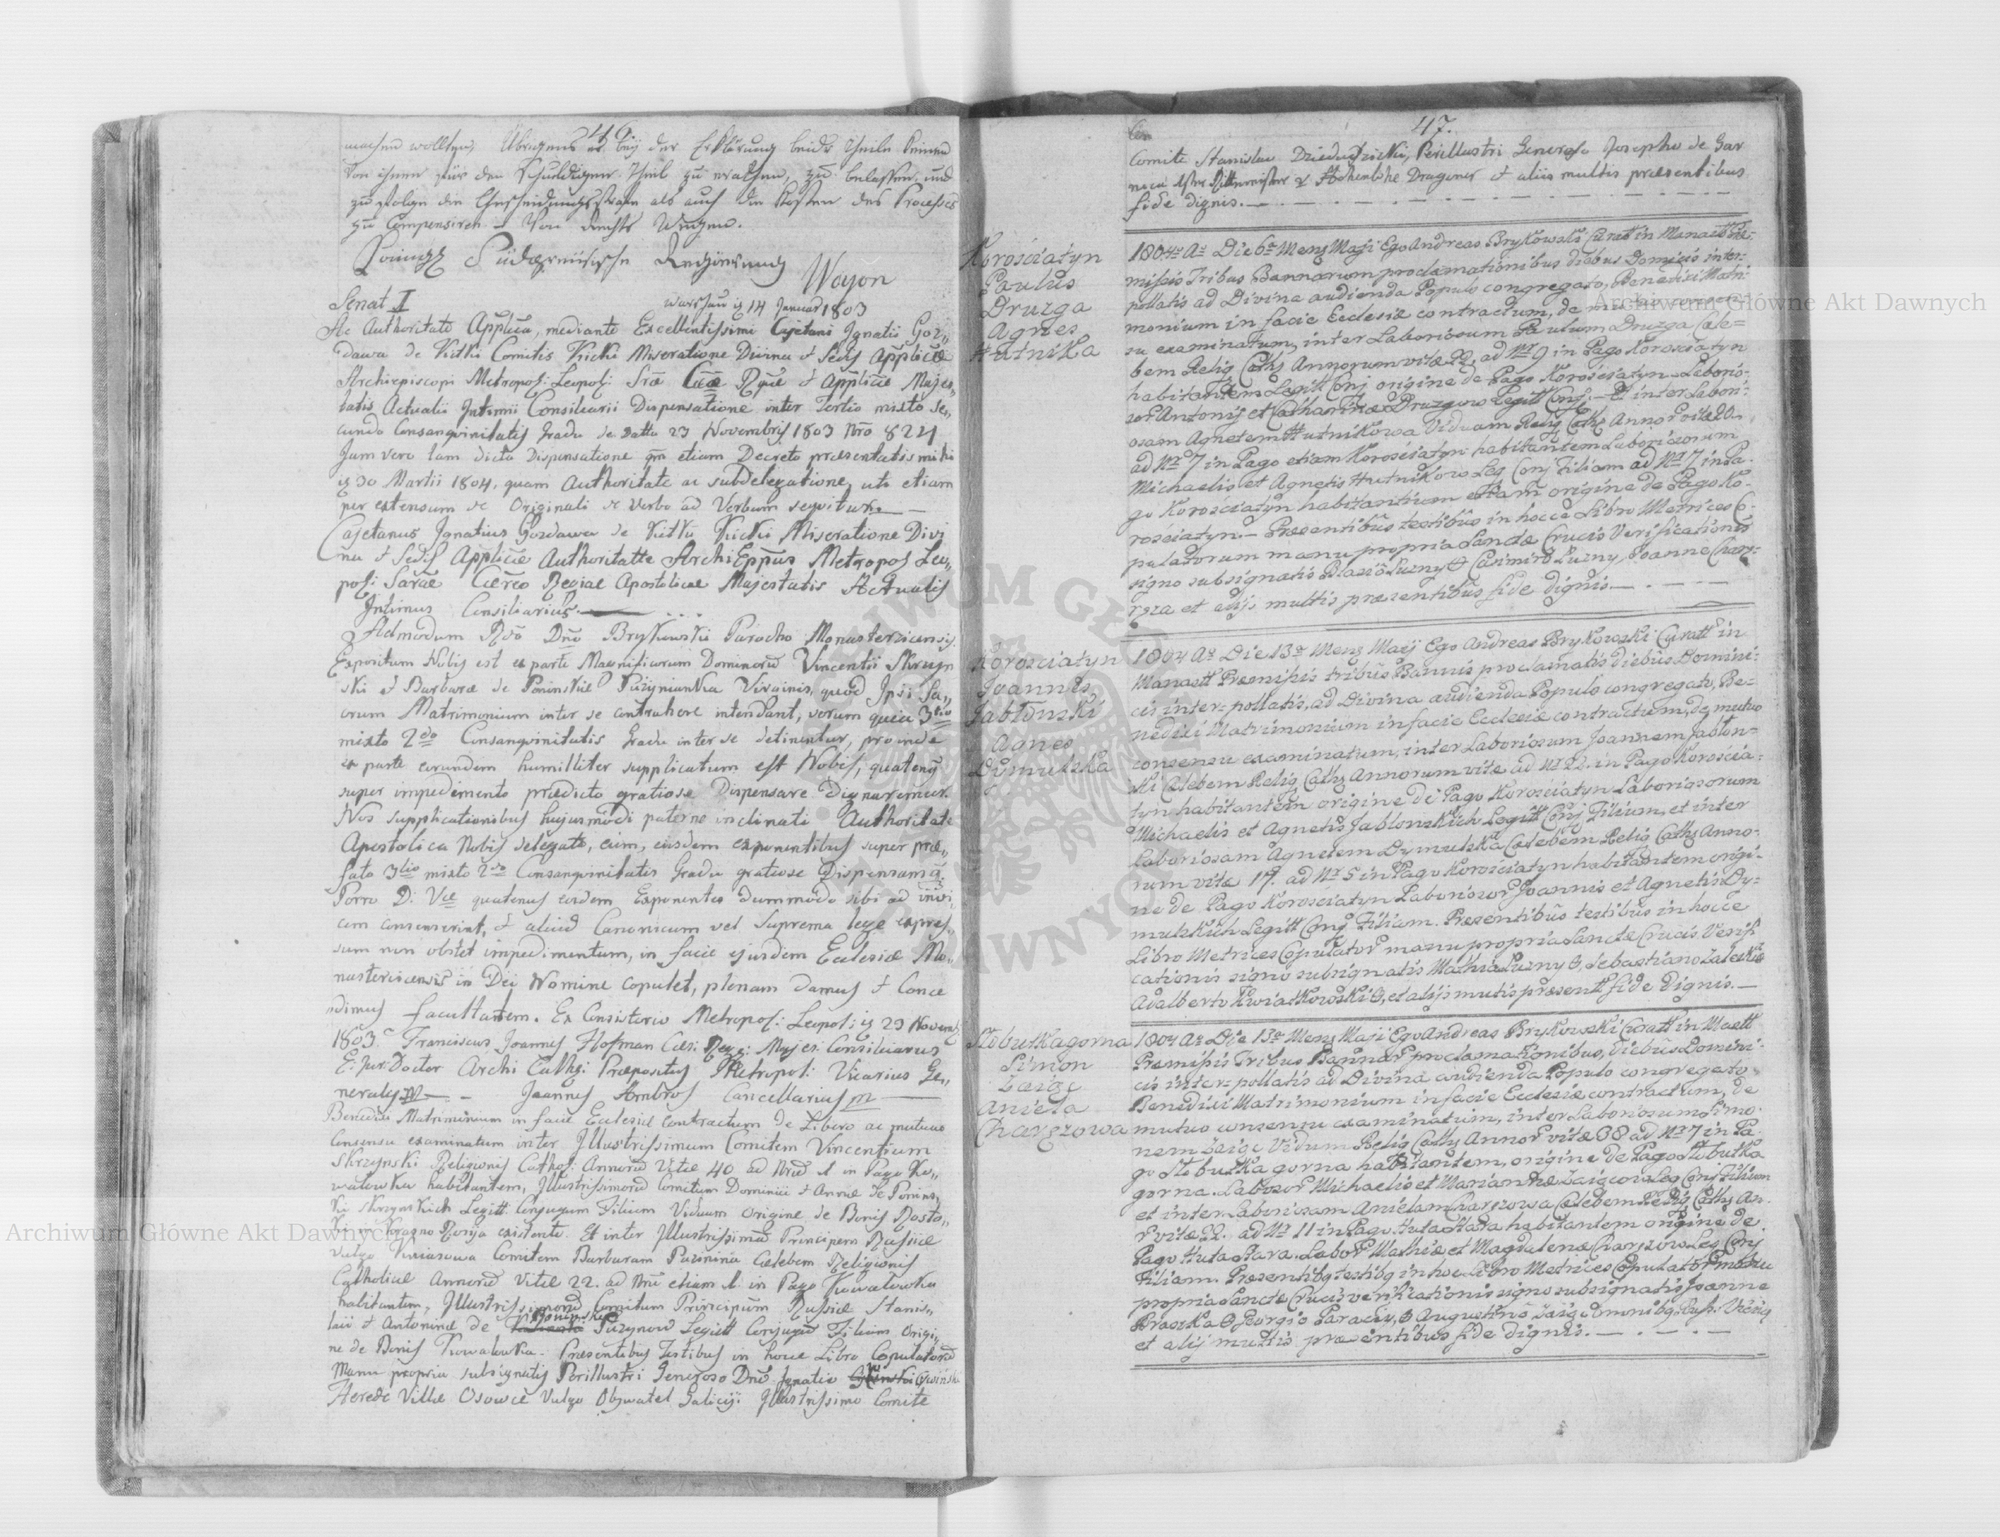 46.
machen wollten, Übrigens es bey der Erklärung beide Theile keinen
von ihnen für den Schuldigen Theil zu erachten, zu belassen und
zu folge die Ehescheidungsstrafe als auch die Kosten des Processes
zu Compensiren. Von Rechts Wegen.
Südpreusische Regierung Woyon
Senat I Warschau 14 Januar 1803
Ac Authoritate Applica, mediante Excellentissimi Cajetani Ignatii Goz,,
dawa de Kitki Comitis Kicki Miseratione Divina et Sedis Applicæ
Archiepiscopi Metropol: Leopol: Sræ Cææ Rquæ et Applicæ Majes,,
tatis Actualis Intimi Consiliarii Dispensatione inter Tertio mixto se,,
cundo Consanqvinitatis Gradu de Datto 23 Novembris 1803 Nro 824
Jum vero tam dicta Dispensatione qm etiam Decreto præsentatis mihi
30 Martii 1804, quam Authoritate ac subdelegatione, uti etiam
per extensum de Originali de Verbo ad Verbum seqvitur
Cajetanus Ignatius Gozdawa de Kitki Kicki Miseratione Divi
na et Sedis Applicæ Authoritatte ArchiEppus Metropol Leo,,
pol: Saræ Cæreo Regiae Apostolicae Majestatis Actualis
Intimus Consiliarius
Admodum Rdo Dno Brykowski Parocho Monasterzicensis.
Expositum Nobis est ex parte Magnificorum Dominorū Vincentii Skrzyn
ski et Barbaræ de Poninskie Puzynianka Virginis, quod Ipsi Sa,,
crum Matrimonium inter se contrahere intendant, verum quia 3tio
mixto 2do Consanqvinitatis Gradu inter se detinentur, proinde
ex parte eorundem humilliter supplicatum est Nobis, quateng
super impedimento prædicto gratiose Dispensare Dignaremur.
Nos supplicationibus hujusmodi paterne inclinati Authoritate
Apostolica Nobis delegata, cum, eisdem exponentibus super præ,,
fato 3tio mixto 2do Consanqvinitatis Gradu gratiose Dispensamg.
Porro D: Vræ quatenus eosdem Exponentes dummodo sibi ad invi,
cem consenserint, et aliud Canonicum vel Suprema lege expres,
sum non obstet impedimentum, in facie ejusdem Ecclesiæ Mo,,
nasteriscensis in Dei Nomine copulet, plenam damus et Conce
dimus facultatem. Ex Consistorio Metropol: Leopol: 23 Novemb
1803. Franciscus Joannes Hofman Cæs: Reg: Majes: Consiliarus
E. Jur: Doctor Archi Cathg: Præpositus Metropol: Vicarius Ge,,
neralis Joannes Ambros Cancellarius
Benedixi Matrimonium in facie Ecclesiæ Contractum de Libero ac mutuo
Consensu examinatum inter Illustrissimum Comitem Vincentium
Skrzynski Religionis Cathol: Annorū Vitæ 40 ad Nrū 1 in Pago Ko,,
walowka habitantem, Illustrissimorū Comitum Dominici et Annæ de Ponins,,
kie Skrzynskich Legitt Conjugum Filium Viduum Origine de Bonis Rosto,,
existente. Et inter Illustrissimā Principem Russiæ
vulgo Comitem Barbaram Puzynina Cælebem Religionis
Catholicæ Annorū Vitæ 22. ad Nrū etiam 1. in Pago Kowalowka
habitantem, Illustrissimorū Comitum Principum Russiæ Stanis,,
lai et Antoninæ de Poninskie Puzynow Legitt Conjugū Filium Origi,,
ne de Bonis Kowalowka. Præsentibus Testibus in hocce Libro Copulatorū
Manu propria subsignatis Perillustri Generoso Dno Ignatio
Herede Villæ Osowce vulgo Obywatel Galicij. Illustrissimo Comite
47.
Comite Stanislao Dzieduszicki, Perillustri Generoso Josepho de Gar
Rittmeister v Dragoner et aliis multis præsentibus
fide dignis.
Korosciatyn
Paulus
Druzga
Agnes
Hutnika
1804to Ao Die 6ta Mens Maji Ego Andreas Brykowski Curatt in Monastt Præ-
missis Tribus Bannorum proclamationibus diebus Domicis inter-
pollatis ad Divina audienda Populo congregato, Benedixi Matri-
monium in facie Ecclesiæ contractum, de mutuo consen-
su examinatum, inter Laboriosum Paulum Druzga Cæle-
bem Relig Caths Annorum vitæ 22, ad Nr 9 in Pago Korosciatyn
habitantem Legitt Conj origine de Pago Korosciatyn Laborio-
sor Antonij et Catharinæ Druzgow Legitt Conj. Et inter Labori-
osam Agnetem Hutnikowa Viduam Relig Caths Annor vitæ 20.
ad Nr 7 in Pago etiam Korosciatyn habitantem Laboriosorum
Michaelis et Agnetis Hutnikow Leg Conj Filiam ad Nr 7 in Pa-
go Korosciatyn habitantium etiam origine de Pago Ko-
rosciatyn. Præsentibus testibus in hocce Libro Metrices Co-
pulatorum manu propria Sanctæ Crucis Verificationis
signo subsignatis Blasio Luzny Casimiro Luzny, Joanne Charę-
za et alijs multis præsentibus fide dignis.
Korosciatyn
Joannes
Jabłonski
Agnes
Dymulska
1804 Ao Die 13a Mens Maij Ego Andreas Brykowski Curatt in
Monastt Præmisis tribus Bannis proclamatis diebus Domini-
cis inter-pollatis, ad Divina audienda Populo congregato, Be-
nedixi Matrimonium in facie Ecclesiæ contractum, de mutuo
consensu examinatum, inter Laboriosum Joannem Jablon-
ski Cælebem Relig Caths Annorum vitæ ad Nr 22. in Pago Koroscia-
tyn habitantem origine de Pago Korosciatyn Laboriosorum
Michaelis et Agnetis Jablonskich Legitt Conj Filium, et inter
Laboriosam Agnetem Dymulska Cælebem Relig Caths Anno-
rum vitæ 17. ad Nr 5 in Pago Korosciatyn habitantem origi-
ne de Pago Korosciatyn Laboriosor Joannis et Agnetis Dy-
mulskich Legitt Conj Filiam. Presentibus testibus in hocce
Libro Metrices Copulator manu propria Sanctæ Crucis Verifi
cationis signo subsignatis Mathia Luzny, Sebastiano Zaleski
Adalberto Kwiatkowski, et alijs mutis præsentt fide dignis.
Słobutkagorna
Simon
Zaigc
Aniela
Charęzowa
1804 Ao Die 13a Mens Maji Ego Andreas Brykowski Curatt in Mastt
Premisis Tribus Bannor proclamationibus, diebus Domini-
cis inter-pollatis ad Divina audienda Populo congregato.
Benedixi Matrimonium in facie Ecclesiæ contractum, de
mutuo consensu examinatum, inter Laboriosum Simo-
nem Zaigc Viduum Relig Caths Annor vitæ 38 ad Nr 7 in Pa-
go Słobutka gorna habitantem, origine de Pago Słobutka
gorna. Labosor Michaelis et Mariannæ Zaigcow Leg Conj Filium
et inter Laboriosam Anielam Charęzowa Cælebem Relig Caths An-
r vitæ 22. ad Nr 11 in Pago Huta Stara habitantem origine de
Pago Huta Stara. Labor Mathiæ et Magdalenæ Charęzow Leg Conj
Filiam. Præsentibg testibg in hoc Libro Metrices Copulator manu
propria Sanctæ Crucis verificationis signo subsignatis Joanne
Braszka Georgio Paraciy, Augustino Zaigc omnibg
et alij multis præsentibus fide dignis.
Archiwum Główne Akt Dawnych
Archiwum Główne Akt Dawnych
ARCHIWUM GŁÓWNE AKT DAWNYCH